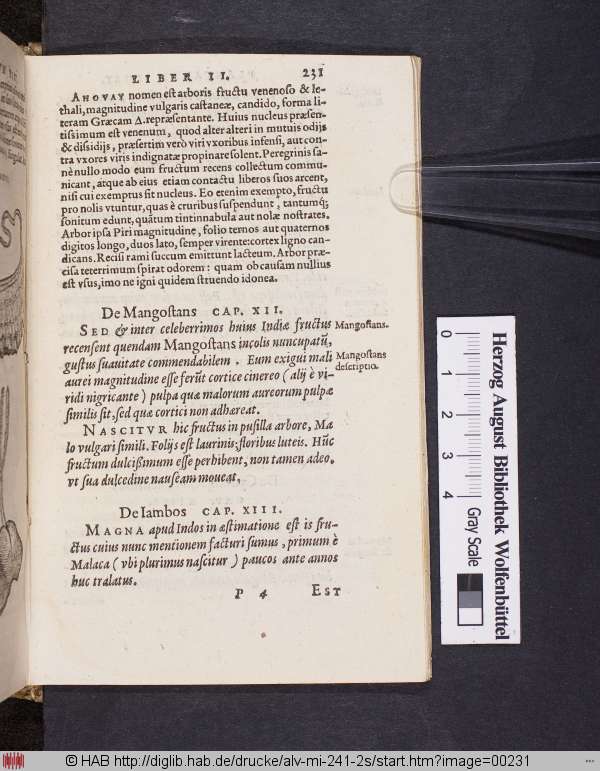 LIBER II. 231
AHOVAY nomen est arboris fructu venenoso & le-
thali, magnitudine vulgaris castaneæ, candido, forma li-
teram Græcam Δ. repræsentante. Huius nucleus præsen-
tissimum est venenum, quod alter alteri in mutuis odijs
& dissidijs, præsertim verò viri vxoribus infensi, aut con-
tra vxores viris indignatæ propinare solent. Peregrinis sa-
nè nullo modo eum fructum recens collectum commu-
nicant, atque ab eius etiam contactu liberos suos arcent,
nisi cui exemptus sit nucleus. Eo etenim exempto, fructu
pro nolis vtuntur, quas è cruribus suspendunt, tantumq;
sonitum edunt, quãtum tintinnabula aut nolæ nostrates.
Arbor ipsa Piri magnitudine, folio ternos aut quaternos
digitos longo, duos lato, semper virente: cortex ligno can-
dicans. Recisi rami succum emittunt lacteum. Arbor præ-
cisa teterrimum spirat odorem: quam ob causam nullius
est vsus, imo ne igni quidem struendo idonea.
De Mangostans CAP. XII.
SED & inter celeberrimos huius Indiæ fructus
recensent quendam Mangostans incolis nuncupatũ,
gustus suauitate commendabilem. Eum exigui mali
aurei magnitudine esse ferũt cortice cinereo (alij è vi-
ridi nigricante) pulpa quæ malorum aureorum pulpæ
similis sit, sed quæ cortici non adhæreat.
NASCITVR hic fructus in pusilla arbore, Ma
lo vulgari simili. Folijs est laurinis; floribus luteis. Hũc
fructum dulcißimum esse perhibent, non tamen adeo,
vt sua dulcedine nauseam moueat.
Mangostans.
Mangostans
descriptio.
De Iambos CAP. XIII.
MAGNA apud Indos in æstimatione est is fru-
ctus cuius nunc mentionem facturi sumus, primum è
Malaca (vbi plurimus nascitur) paucos ante annos
huc tralatus.
P 4 EST
0 1 2 3 4
Gray Scale
Herzog August Bibliothek Wolfenbüttel
© HAB http://diglib.hab.de/drucke/alv-mi-241-2s/start.htm?image=00231